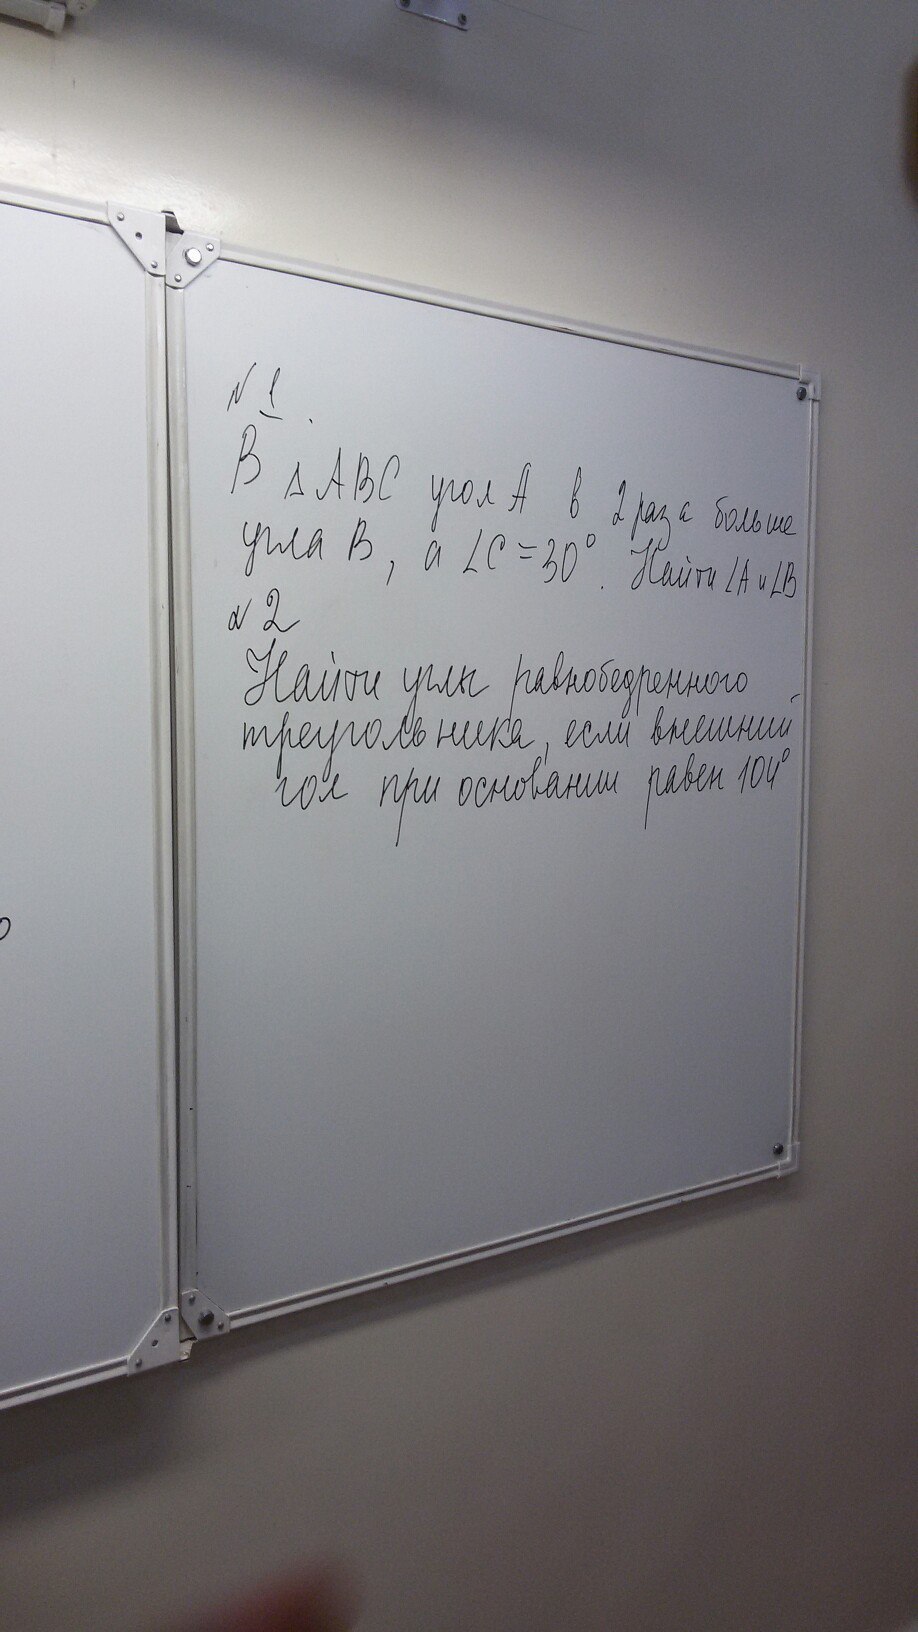 № 1.
В △ABC угол A в 2 раза больше
угла B, а ∠C = 30°. Найти ∠A и ∠B
№ 2
Найти углы равнобедренного
треугольника, если внешний
гол при основании равен 104°